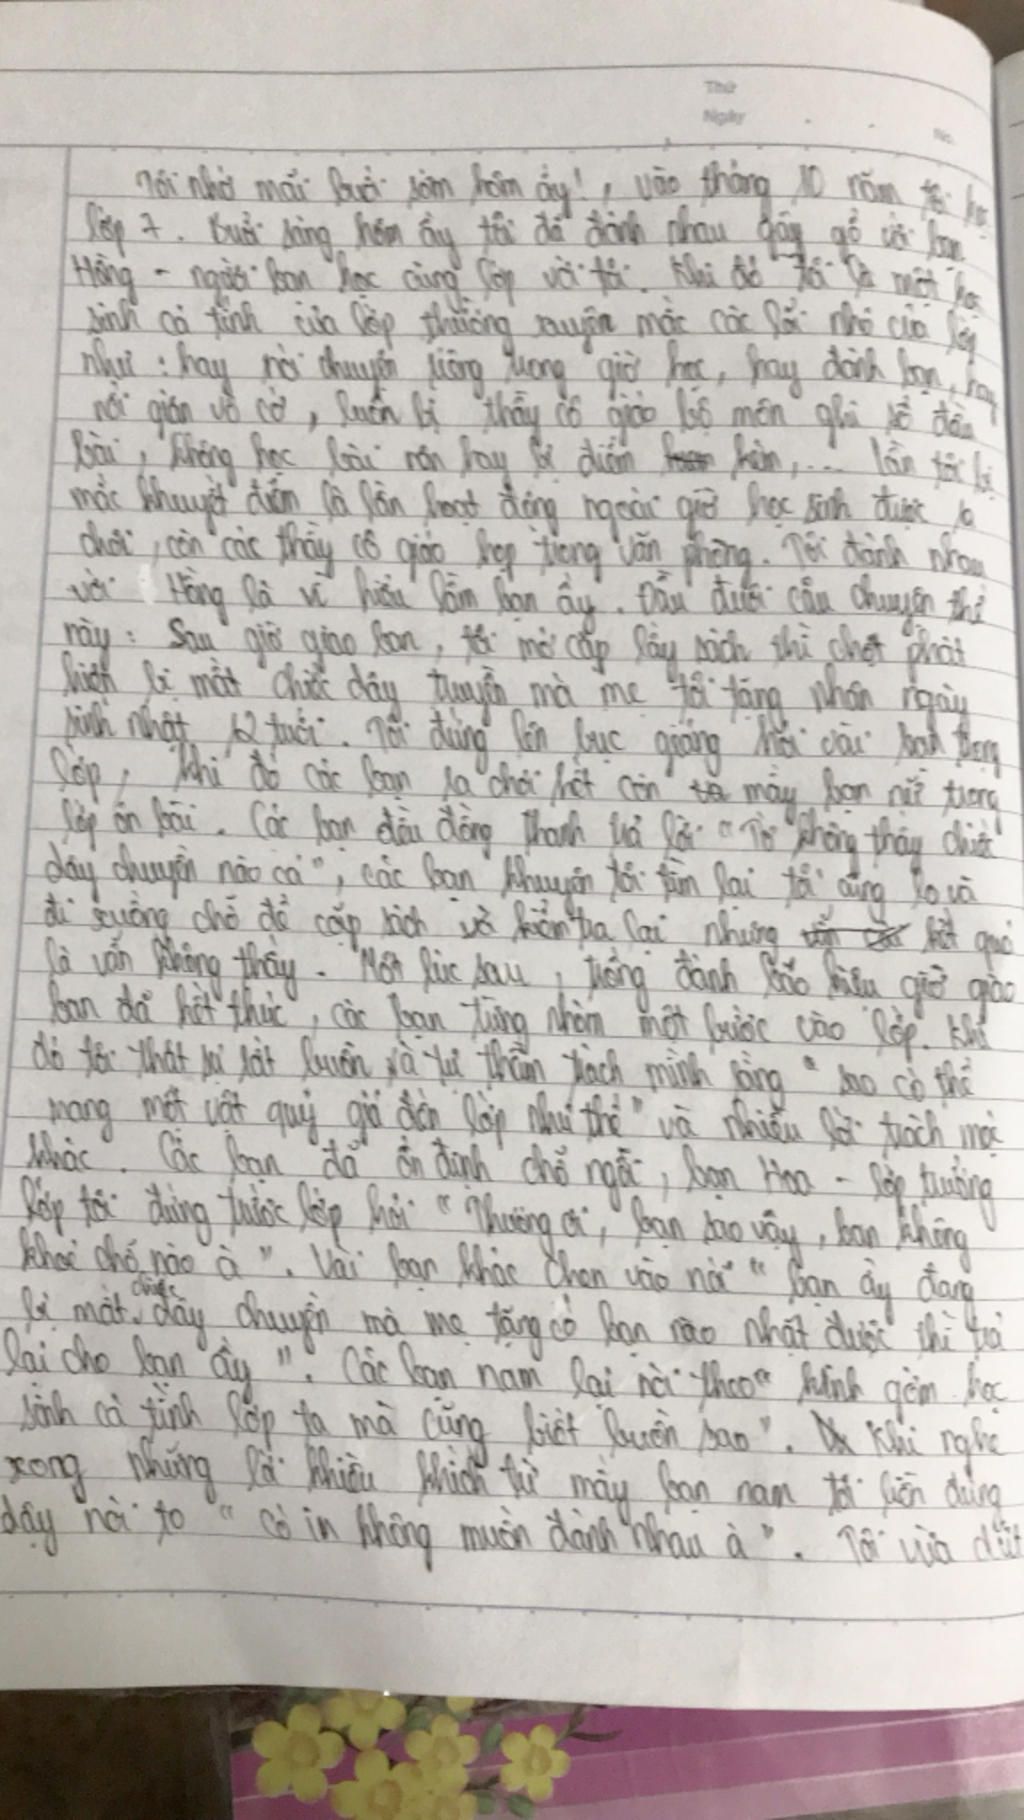 Thứ
Ngày
No.
Tôi nhớ mãi buổi sớm hôm ấy!, vào tháng 10 năm tôi học
lớp 7. Buổi sáng hôm ấy tôi đã đánh nhau gây gổ với bạn
Hồng - người bạn học cùng lớp với tôi. Khi đó tôi là một học
sinh cá tính của lớp thường xuyên mắc các lỗi nhỏ của lớp
như: hay nói chuyện riêng trong giờ học, hay đánh bạn, hay
nổi giận vô cớ, luôn bị thầy cô giáo bộ môn ghi sổ đầu
bài, không học bài nên hay bị điểm kém,... lần tôi bị
mắc khuyết điểm là lần hoạt động ngoài giờ học sinh được ra
chơi, còn các thầy cô giáo họp trong văn phòng. Tôi đánh nhau
với Hồng là vì hiểu lầm bạn ấy. Đầu đuôi câu chuyện thế
này: Sau giờ giao ban, tôi mở cặp lấy sách thì chợt phát
hiện bị mất chiếc dây truyền mà mẹ tôi tặng nhân ngày
sinh nhật 12 tuổi. Tôi đứng lên bục giảng hỏi các bạn trong
lớp, khi đó các bạn ra chơi hết còn mấy bạn nữ trong
lớp ôn bài. Các bạn đều đồng thanh trả lời "Tớ không thấy chiếc
dây chuyền nào cả", các bạn khuyên tôi tìm lại tôi cũng lo và
đi xuống chỗ để cặp sách và kiểm tra lại nhưng kết quả
là vẫn không thấy. Một lúc sau, trống đánh báo hiệu giờ giao
ban đã kết thúc, các bạn từng nhóm một bước vào lớp. Khi
đó tôi thật sự rất buồn và tự thầm trách mình rằng "sao có thể
mang một vật quý giá đến lớp như thế" và nhiều lời trách móc
khác. Các bạn đã ổn định chỗ ngồi, bạn Hoa - lớp trưởng
lớp tôi đứng trước lớp hỏi "Thương ơi, bạn sao vậy, bạn không
khoẻ chỗ nào à". Vài bạn khác chen vào nói "bạn ấy đang
bị mất chiếc dây chuyền mà mẹ tặng có bạn nào nhặt được thì trả
lại cho bạn ấy". Các bạn nam lại nói theo "hính gớm học
sinh cá tính lớp ta mà cũng biết buồn sao". Khi nghe
xong những lời khiêu khích từ mấy bạn nam tôi liền đứng
dậy nói to "có im không muốn đánh nhau à". Tôi vừa dứt